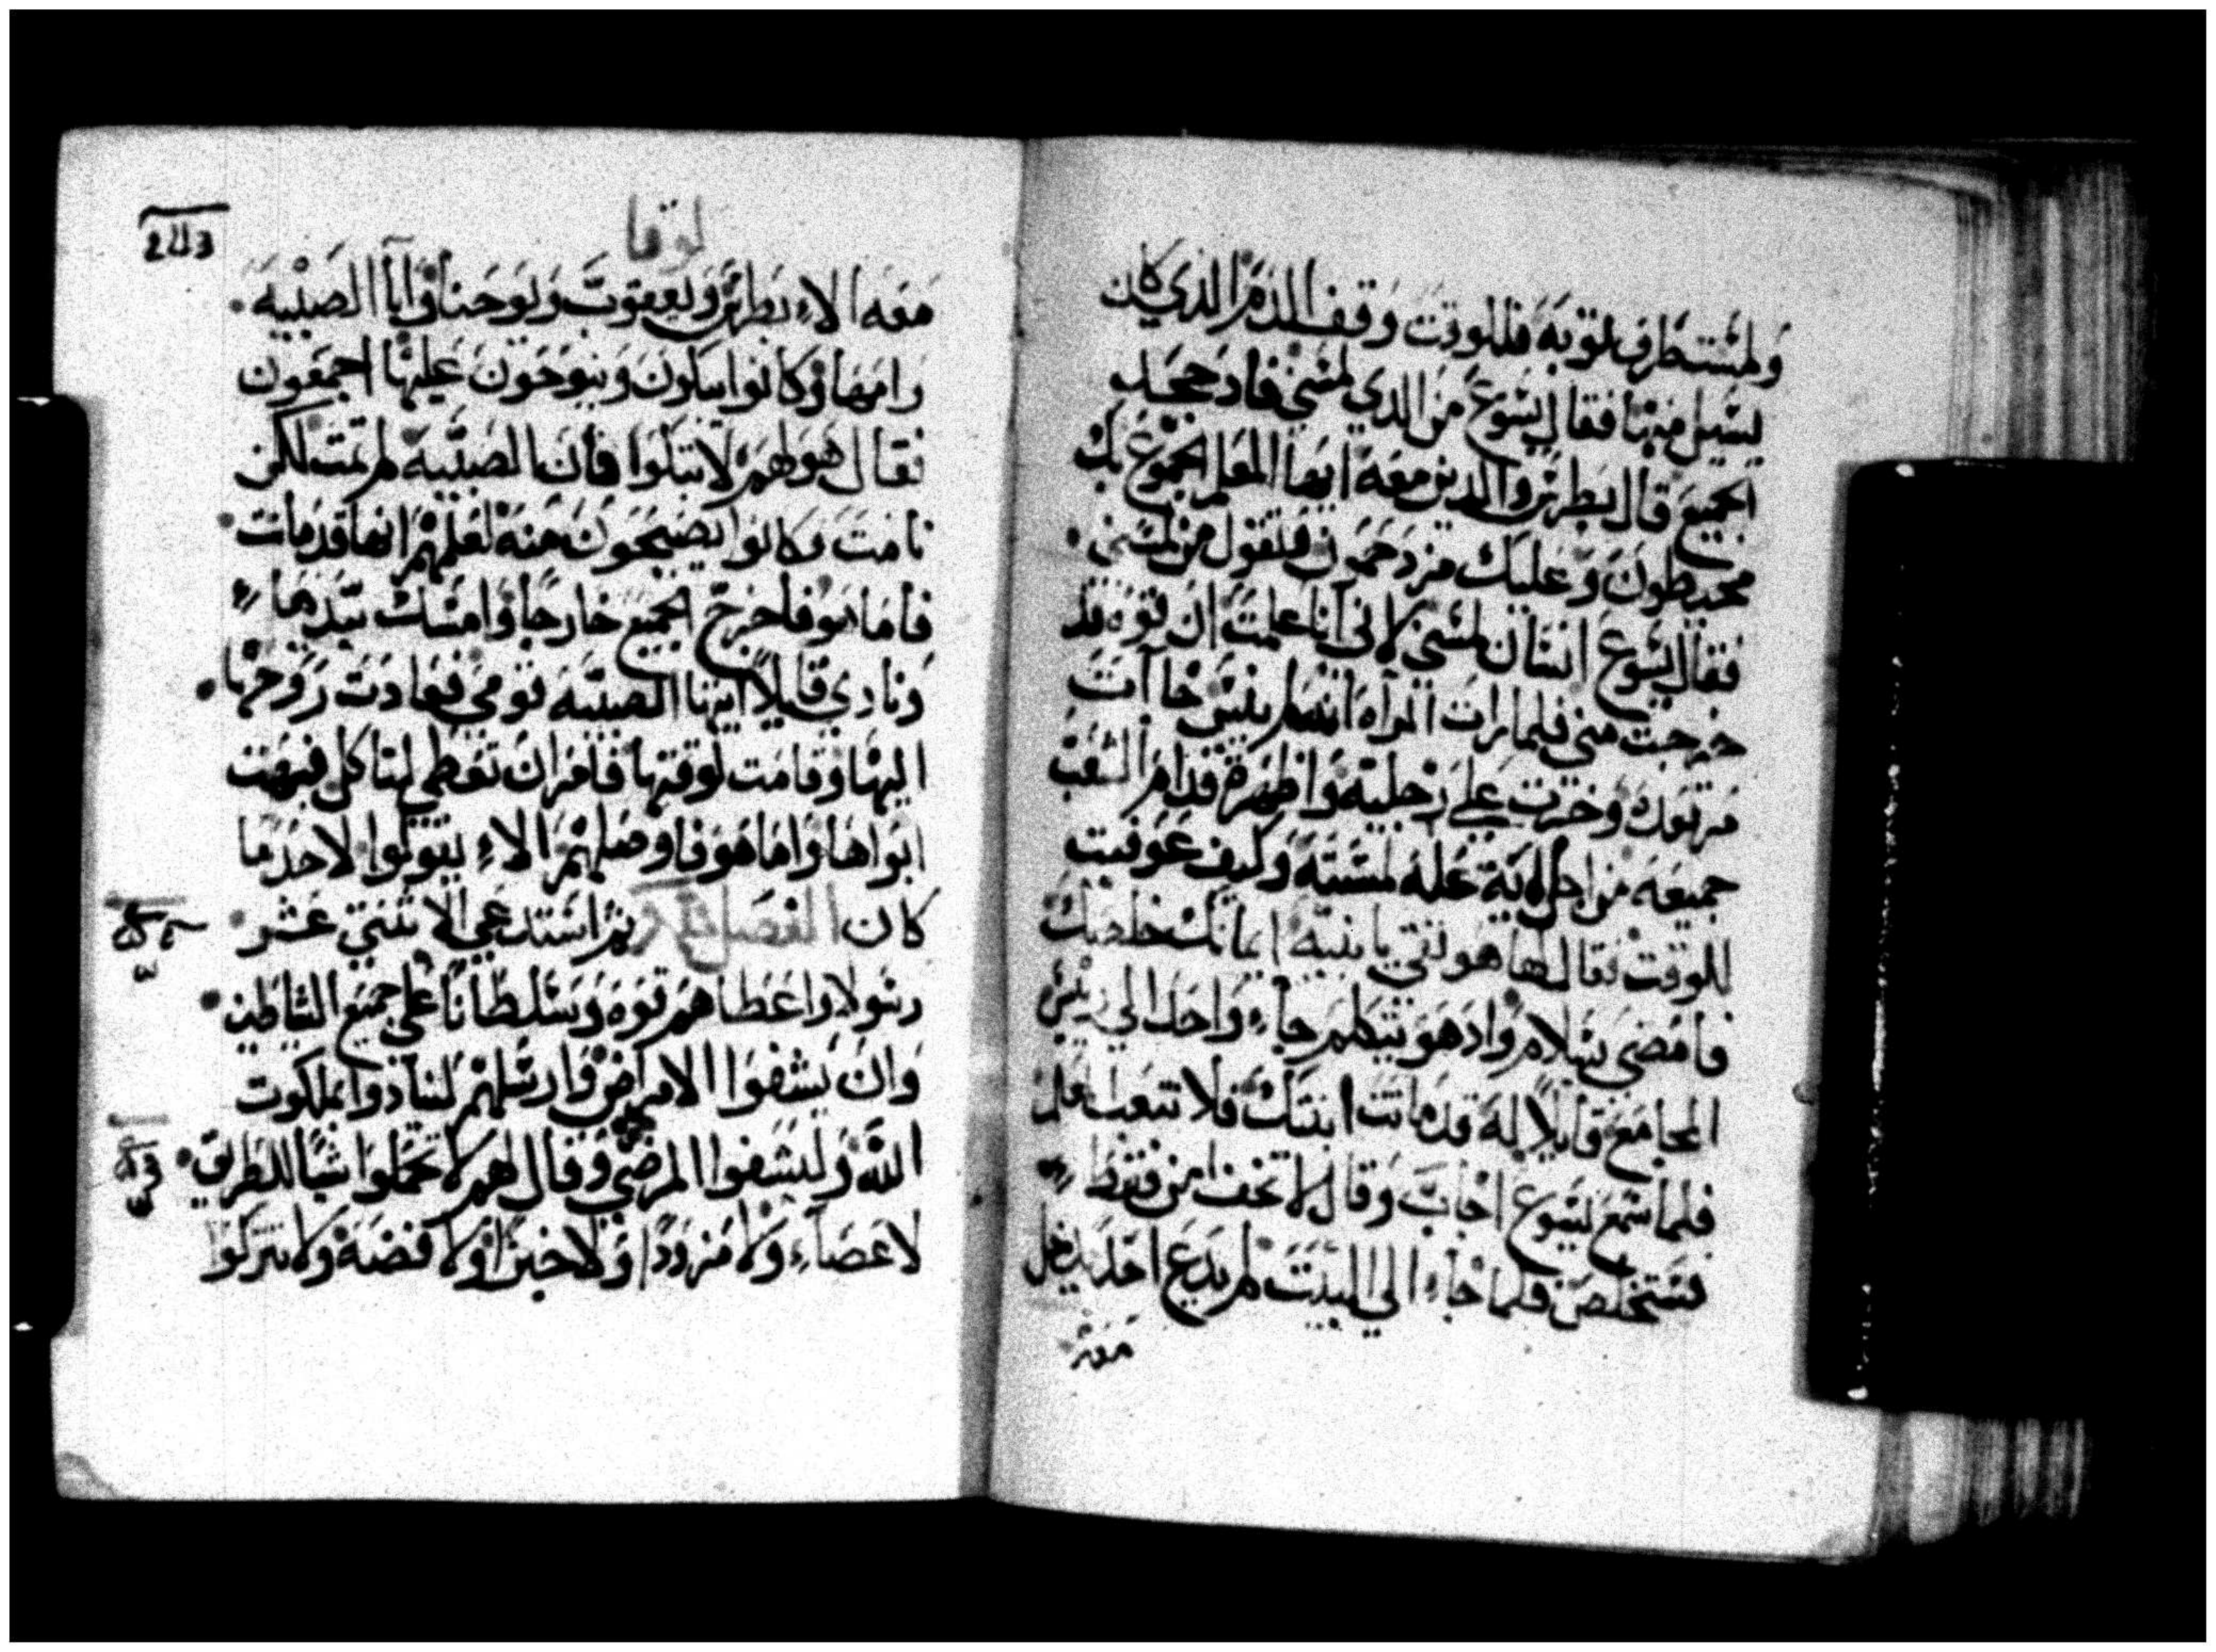 ولمست طرف توبه فللوقت وقف الدم الذي كان
يسيل منها فقال يسوع من الذي لمسني فاد جحد
الجميع قال بطرس والدين معه ايها المعلم الجموع بك
محيطون وعليك مزدحمون فتقول من لمسني
فقال يسوع انسان لمسني لاني انا علمت ان قوه قد
خرجت مني فلما رات المراه انه لم ينس جاآت
مرتعده وخرت علي رجليه واظهرة قدام الشعب
جميعه من اجل اية عله لمسته وكيف عوفيت
للوقت فقال لها هو تقي يا بنيه ايمانك خلصك
فامضي بسلام واد هو يتكلم جاء واحد الي ريس
المجامع قايلا له قد ماتت ابنتك فلا تتعب المعلم
فلما سمع يسوع اجاب وقال لا تخف امن فقط
فستخلص فلما جاء الي البيت لم يدع احد يدخل
معه
لوقا
معه الاء بطرس ويعقوب ويوحنا وابا الصبيه
وامها وكانوا يبكون وينوحون عليها اجمعون
فقال هو لهم لا تبكوا فان الصبيه لم تمت لكن
نامت وكانوا يضحكون منه لعلمهم انها قد ماتت
فاما هو فاخرج الجميع خارجا وامسك بيدها
ونادي قايلا ايتها الصبيه قومي فعادت روحها
اليها وقامت لوقتها فامر ان تعطي لتاكل فبهت
ابواها واما هو فاوصاهم الاء يقولوا لاحد ما
كان الفصل ثم استدعي الاثني عشر
رسولا واعطاهم قوه وسلطانا علي جميع الشاطين
وان يشفوا الامراض وارسلهم لينادوا بملكوت
الله وليشفوا المرضي وقال لهم لا تحملوا شيا للطريق
لا عصاء ولا مزودا ولا خبزا ولا فضة ولا تتركوا